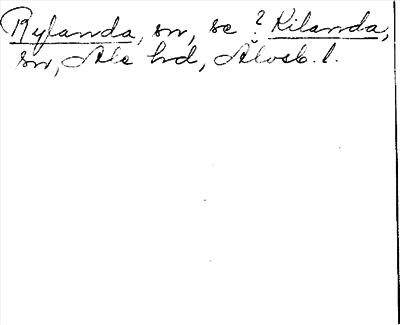 Rylanda, sn, se ? Kilanda,
sn, Ale hd, Älvsb. l.